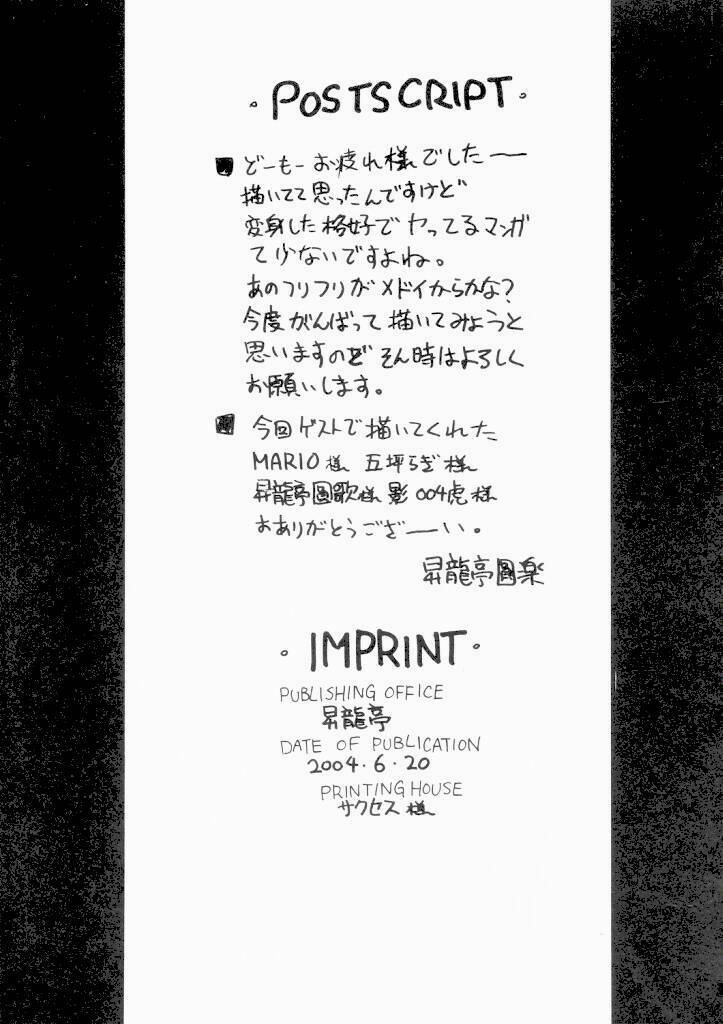 ・POSTSCRIPT・
■どーもーお疲れ様でしたー
描いてて思ったんですけど
変身した格好でヤってるマンガ
て少ないですよね。
あのフリフリがメドイからかな?
今度がんばって描いてみようと
思いますのど そん時はよろしく
お願いします。
■今回ゲストで描いてくれた
MARIO様 五坪らぎ様
昇龍亭圓歌様 影004虎様
おありがとうござーい。
昇龍亭圓楽
・IMPRINT・
PUBLISHING OFFICE
昇龍亭
DATE OF PUBLICATION
2004・6・20
PRINTING HOUSE
サクセス様